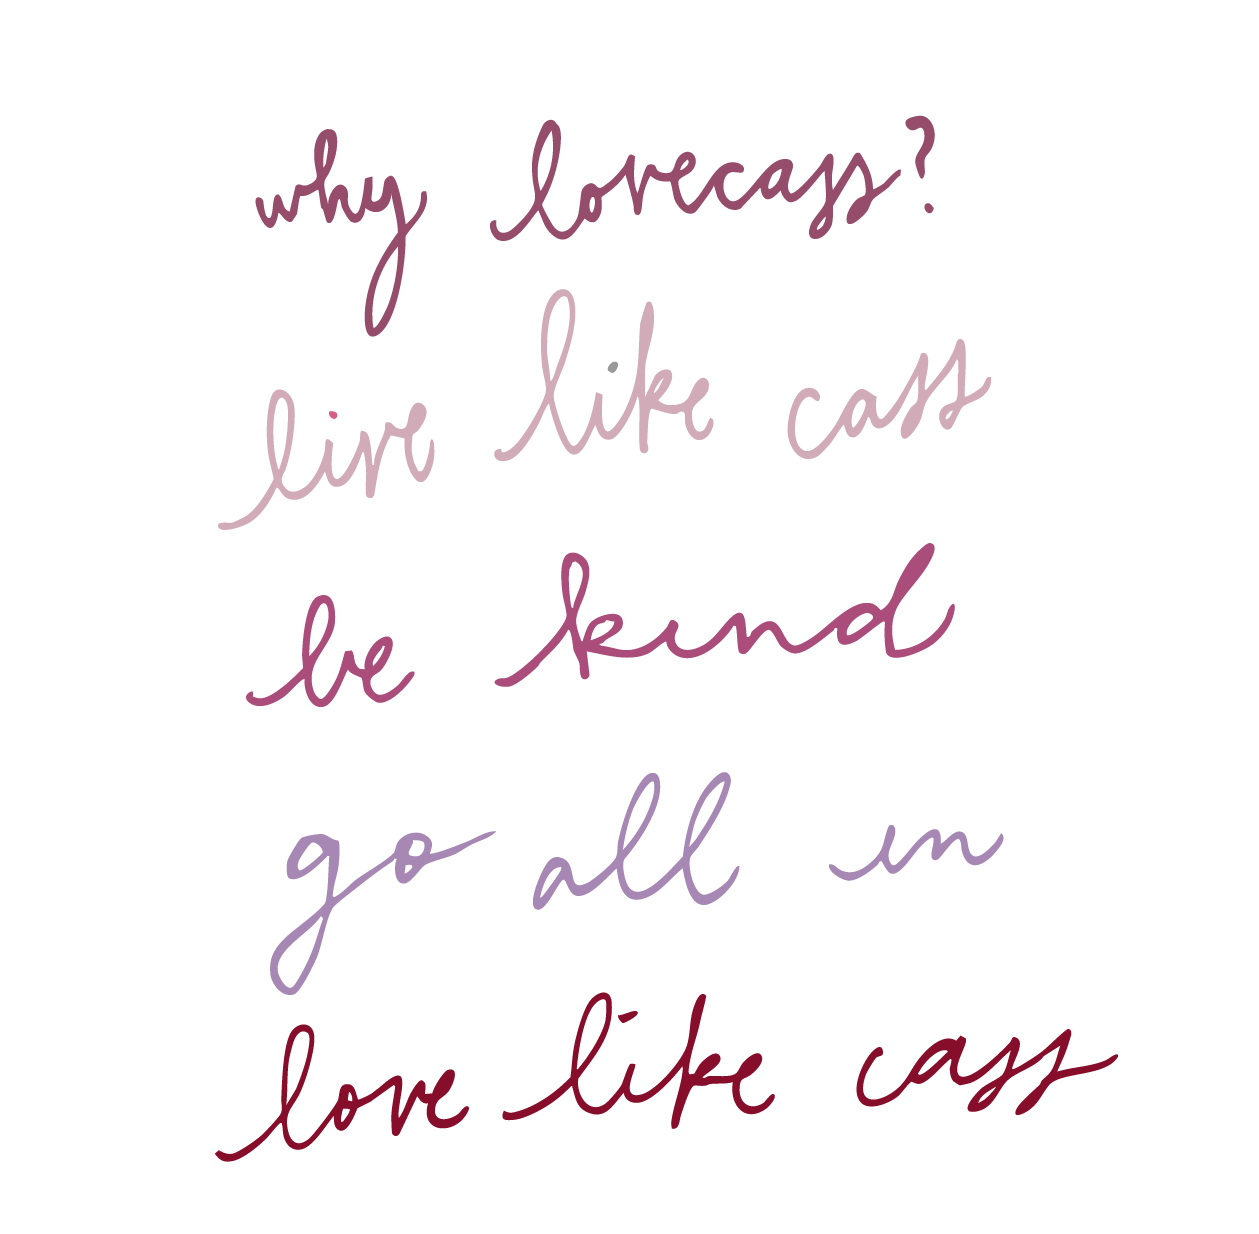 why lovecass?
live like cass
be kind
go all in
love like cass